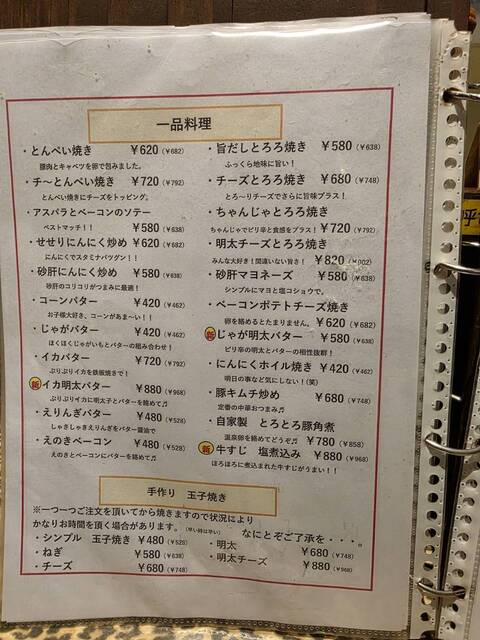 一品料理
・とんぺい焼き ￥620（￥682）
豚肉とキャベツを卵で包みました。
・チ〜とんぺい焼き ￥720（￥792）
とんぺい焼きにチーズをトッピング。
・アスパラとベーコンのソテー
ベストマッチ！！ ￥580（￥638）
・せせりにんにく炒め ￥620（￥682）
にんにくでスタミナバツグン！！
・砂肝にんにく炒め ￥580（￥638）
砂肝のコリコリがつまみに最適！
・コーンバター ￥420（￥462）
お子様大好き、コーンがあま〜い！！
・じゃがバター ￥420（￥462）
ほくほくじゃがいもとバターの組み合わせ！
・イカバター ￥720（￥792）
ぷりぷりイカを鉄板焼きで！
新 イカ明太バター ￥880（￥968）
ぷりぷりイカに明太子とバターを絡めて♬
・えりんぎバター ￥480（￥528）
しゃきしゃきえりんぎをバター醤油で
・えのきベーコン ￥480（￥528）
えのきとベーコンにバターを絡めて♬
・旨だしとろろ焼き ￥580（￥638）
ふっくら地味に旨い！
・チーズとろろ焼き ￥680（￥748）
とろ〜りチーズでさらに旨味プラス！
・ちゃんじゃとろろ焼き
ちゃんじゃでピリ辛と食感をプラス！ ￥720（￥792）
・明太チーズとろろ焼き
みんな大好き！間違いない旨さ！ ￥820（￥902）
・砂肝マヨネーズ ￥580（￥638）
シンプルにマヨと塩コショウで。
・ベーコンポテトチーズ焼き
卵を絡めるとたまりません。 ￥620（￥682）
新 じゃが明太バター ￥580（￥638）
ピリ辛の明太とバターの相性抜群！
・にんにくホイル焼き ￥420（￥462）
明日の事など気にしない！(笑)
・豚キムチ炒め ￥680（￥748）
定番の中華おつまみ♬
・自家製 とろとろ豚角煮
温泉卵を絡めてどうぞ♬ ￥780（￥858）
新 牛すじ 塩煮込み ￥880（￥968）
ほろほろに煮込まれた牛すじがうまい！！
手作り 玉子焼き
※一つ一つご注文を頂いてから焼きますので状況により
かなりお時間を頂く場合があります。（早い時は早い） なにとぞご了承を・・・。
・シンプル 玉子焼き ￥480（￥528）
・ねぎ ￥580（￥638）
・チーズ ￥680（￥748）
・明太 ￥680（￥748）
・明太チーズ ￥880（￥968）